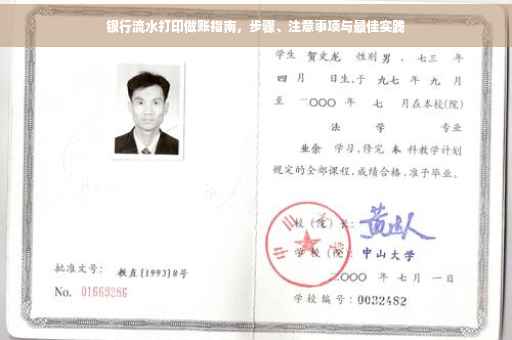 银行流水打印做账指南，步骤、注意事项与最佳实践
学生 贺文龙 性别 男，七三 年
四 月 日生，于 九七 年 九 月
至 二〇〇〇 年 七 月在本校(院)
法 学 专业
业余 学习，修完 本 科教学计划
规定的全部课程，成绩合格，准予毕业。
校（院）长：
学 校（院）：中山大学
二〇〇〇 年 七 月 一 日
学校编号：0032482
批准文号： 教直[1993]8号
No. 01669286